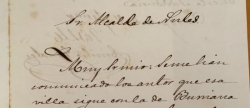 Sr. Alcalde de Nules
Muy Sr mio: Se me han
comunicado los autos que esa
villa sigue con la de Burriana